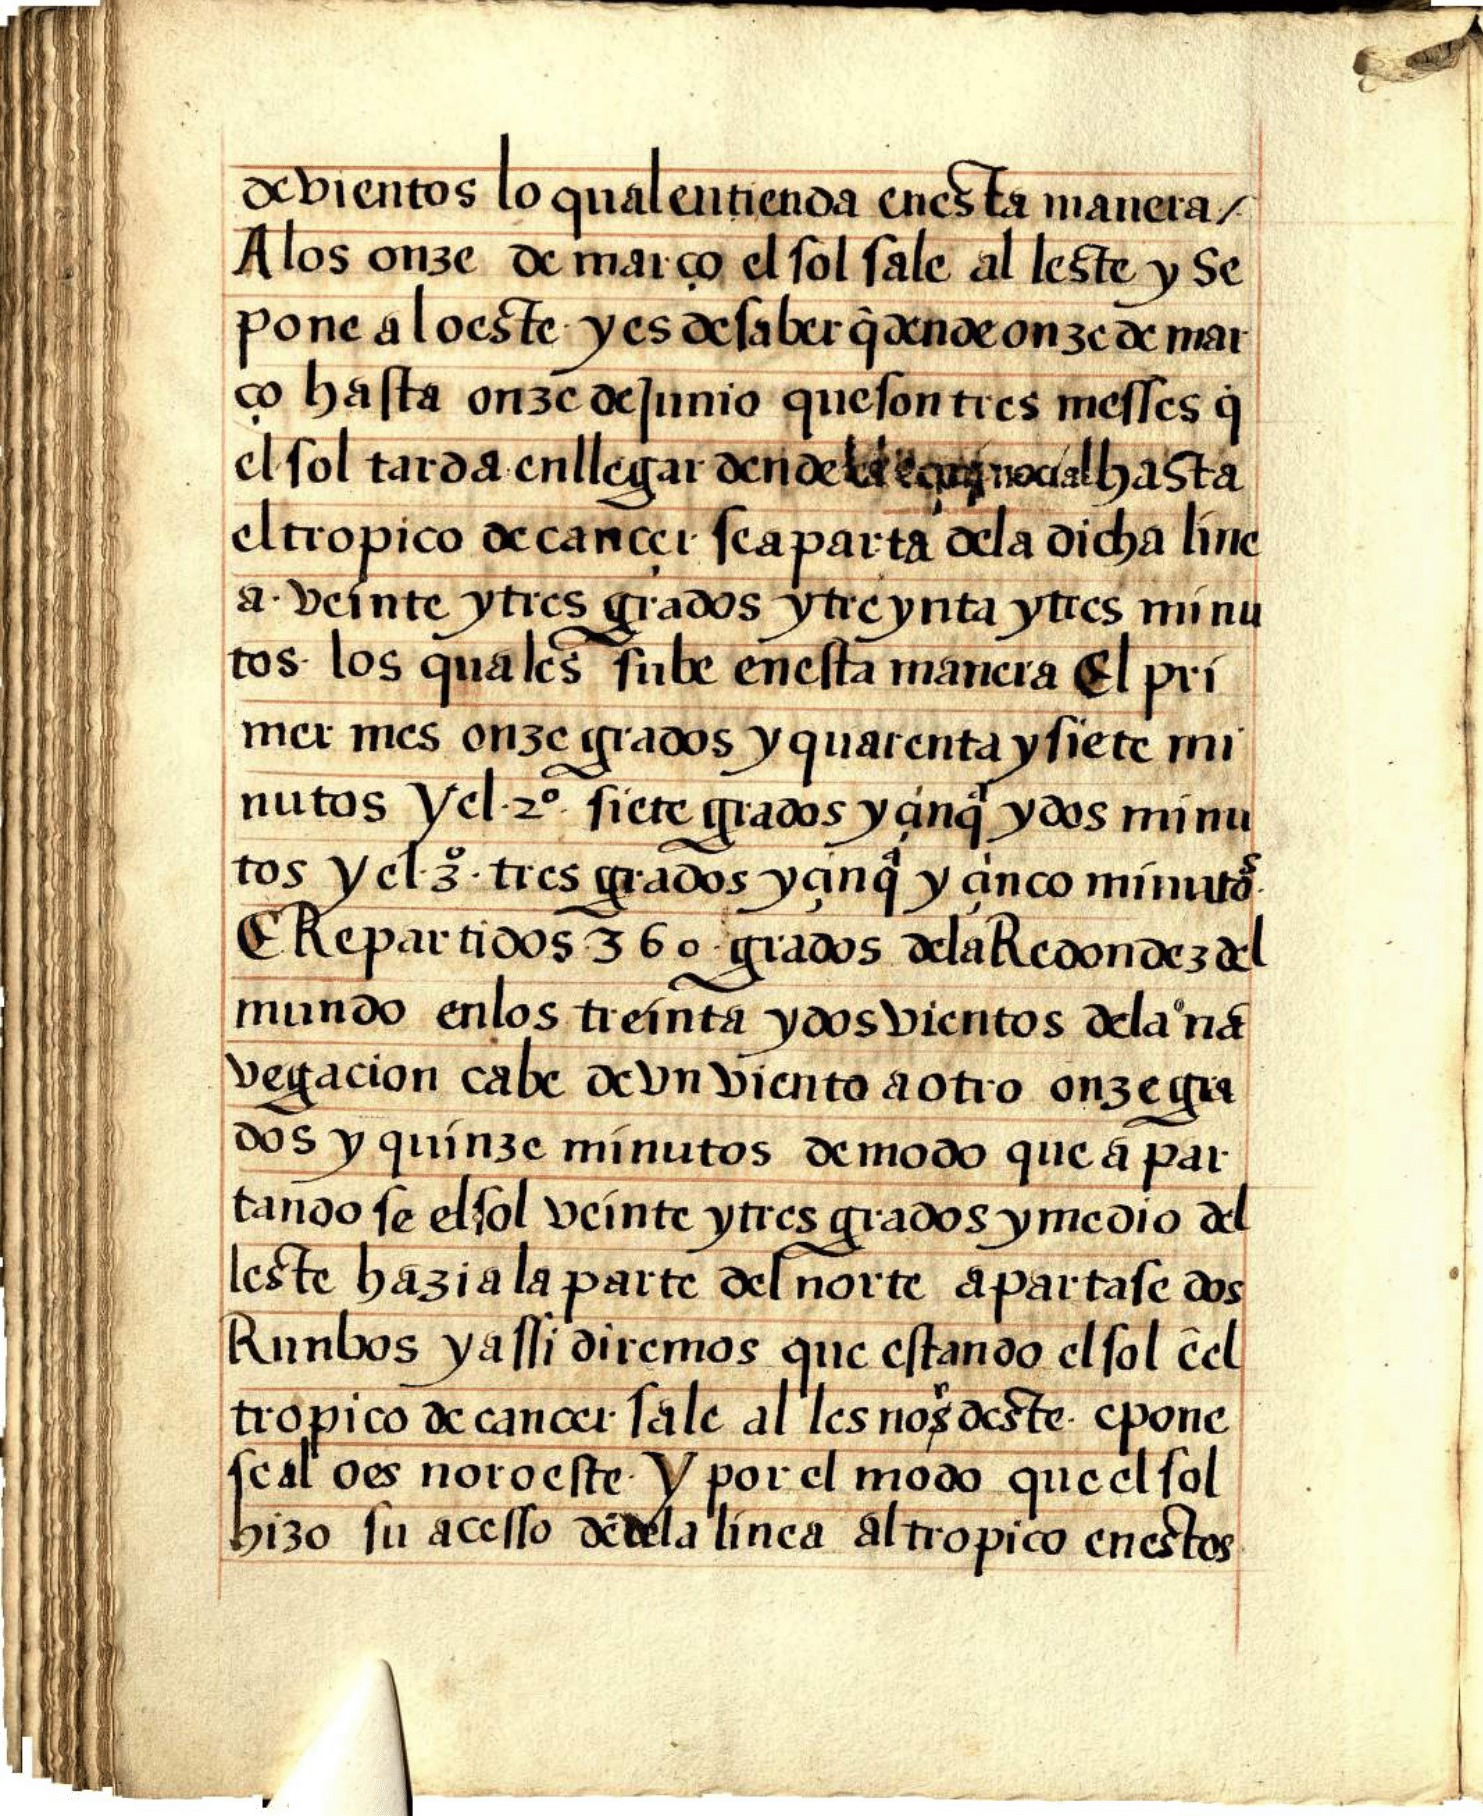 de vientos lo qual entienda enesta manera /
A los onze de março el sol sale al leste y se
pone al oeste · y es de saber q̃ dende onze de mar
ço hasta onze de Junio que son tres messes q̃
el sol tarda en llegar dende la equinocial hasta
el tropico de cançer se aparta dela dicha line
a · veinte y tres grados y treynta y tres minu
tos · los quales sube enesta manera El pri
mer mes onze grados y quarenta y siete mi
nutos Y el · 2º · siete grados y çinqª y dos minu
tos y el · 3º · tres grados y çinqª y çinco minutos ·
E Repartidos 360 · grados dela Redondez del
mundo enlos treinta y dos vientos dela na
vegacion cabe de vn viento a otro onze gra
dos y quinze minutos de modo que a par
tando se el sol veinte y tres grados y medio del
leste hazia la parte del norte apartase dos
Runbos y assi diremos que estando el sol ẽel
tropico de cancer sale al les nordeste · e pone
se al oes noroeste · Y por el modo que el sol
hizo su acesso dẽde la linea al tropico enestos